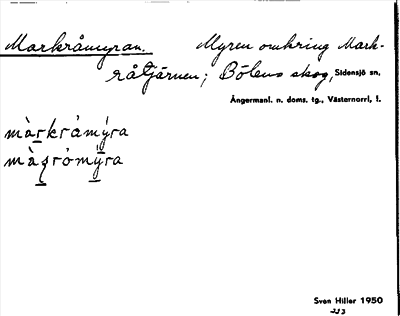 Markråmyran. Myren omkring Mark-
råtjärnen; Bölens skog, Sidensjö sn,
Ångermanl. n. doms. tg., Västernorrl, l.
màrkråmýra
màʂrómýra
Sven Hiller 1950